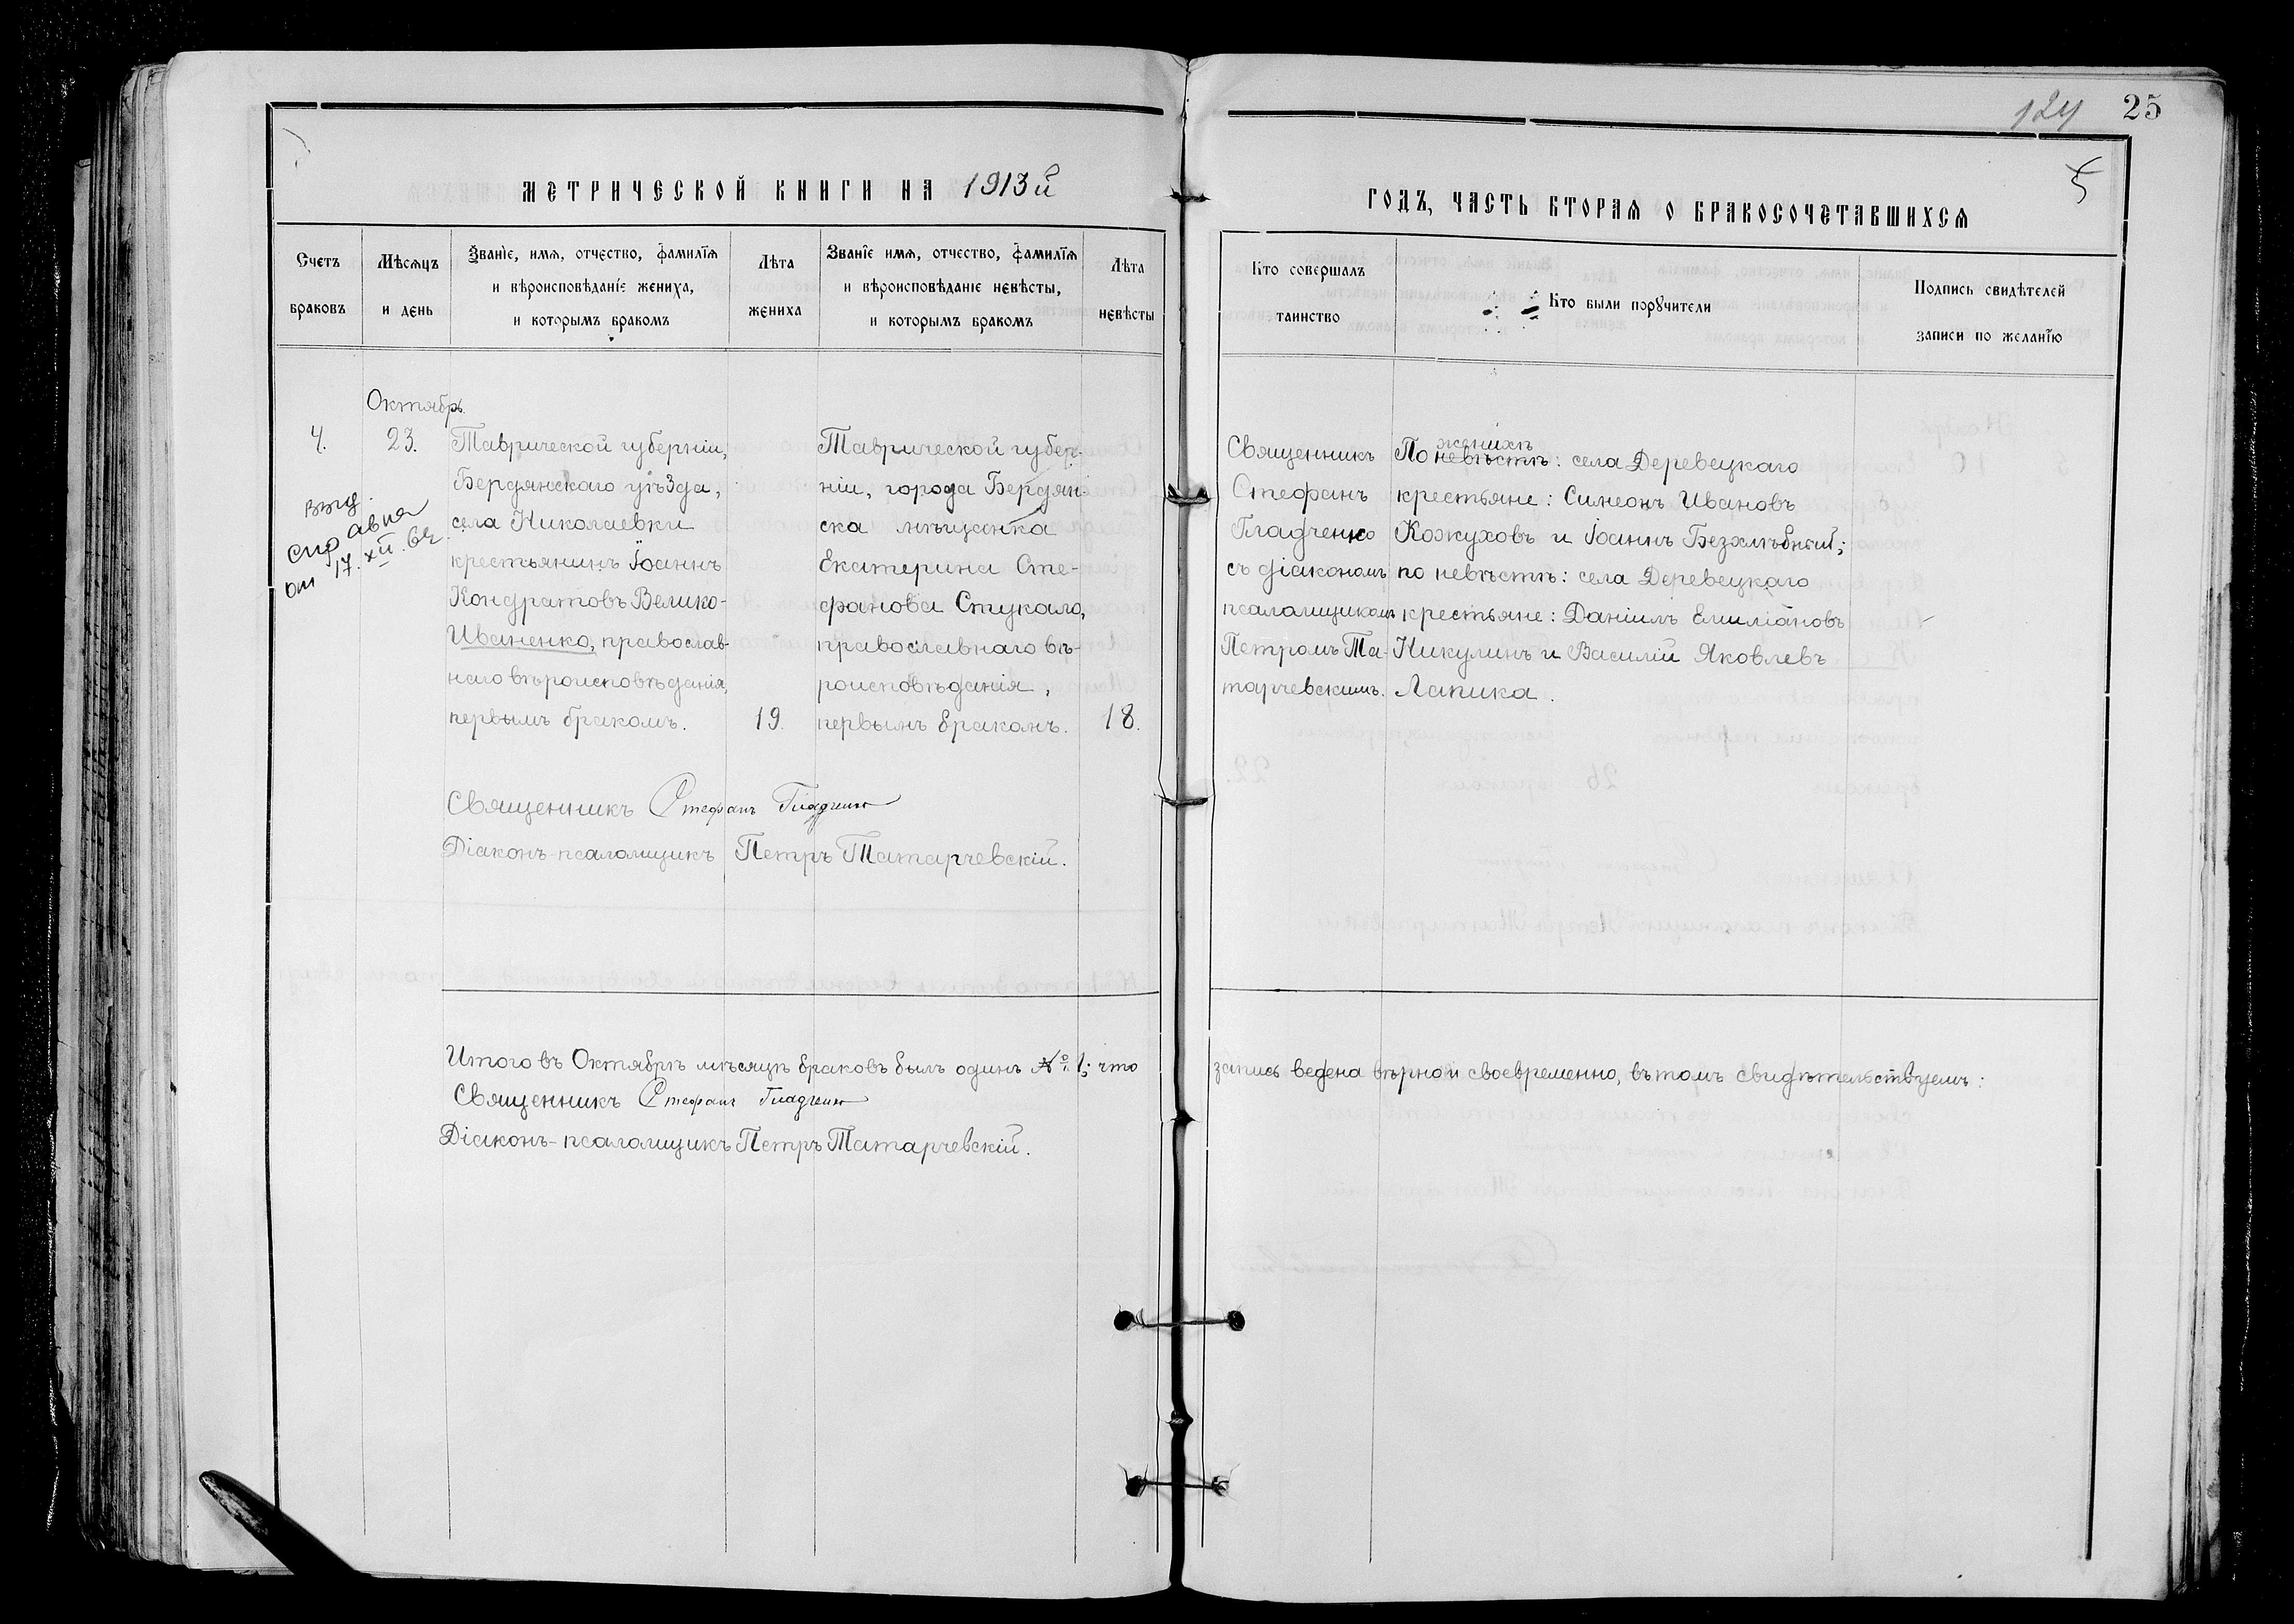 124 25
5
МЕТРИЧЕСКОЙ КНИГИ НА 1913й
ГОДЪ, ЧАСТЬ ВТОРАЯ О БРАКОСОЧЕТАВШИХСЯ
Счетъ
браковъ
Мѣсяцъ
и день
Званіе, имя, отчество, фамилїя
и вѣроисповѣданіе жениха,
и которымъ бракомъ
Лѣта
жениха
Званїе имя, отчество, фамилїя
и вѣроисповѣданіе невѣсты,
и которымъ бракомъ
Лѣта
невѣсты
Кто совершалъ
таинство
Кто были порꙋчители
Подпись свидѣтелей
записи по желанїю
Октябрь.
4.
23.
выд.
справка
от 17.XII.64.
Таврической губерніи,
Бердянскаго уѣзда,
села Николаевки
крестьянинъ Іоаннъ
Кондратовъ Велико-
Иваненко, православ-
наго вѣроисповѣданія,
первымъ бракомъ.
19.
Таврической губер-
ніи, города Бердян-
ска мѣщанка
Екатерина Сте-
фанова Стукало,
православнаго вѣ-
роисповѣданія,
первымъ бракомъ.
18.
Священникъ
Стефанъ
Гладченко
съ діакономъ
псаломщикомъ
Петромъ Та-
тарчевскимъ.
жениху
По невѣстѣ: села Деревецкаго
крестьяне: Симеонъ Ивановъ
Кожуховъ и Іоаннъ Безхлѣбный;
по невѣстѣ: села Деревецкаго
крестьяне: Даніилъ Емиліановъ
Никулинъ и Василій Яковлевъ
Лапика.
Священникъ Стефанъ Гладченко
Діаконъ-псаломщикъ Петръ Татарчевскій.
Итого въ Октябрѣ мѣсяцѣ браковъ былъ одинъ № 1; что запись ведена вѣрно и своевременно, въ томъ свидѣтельствуемъ:
Священникъ Стефанъ Гладченко
Діаконъ-псаломщикъ Петръ Татарчевскій.